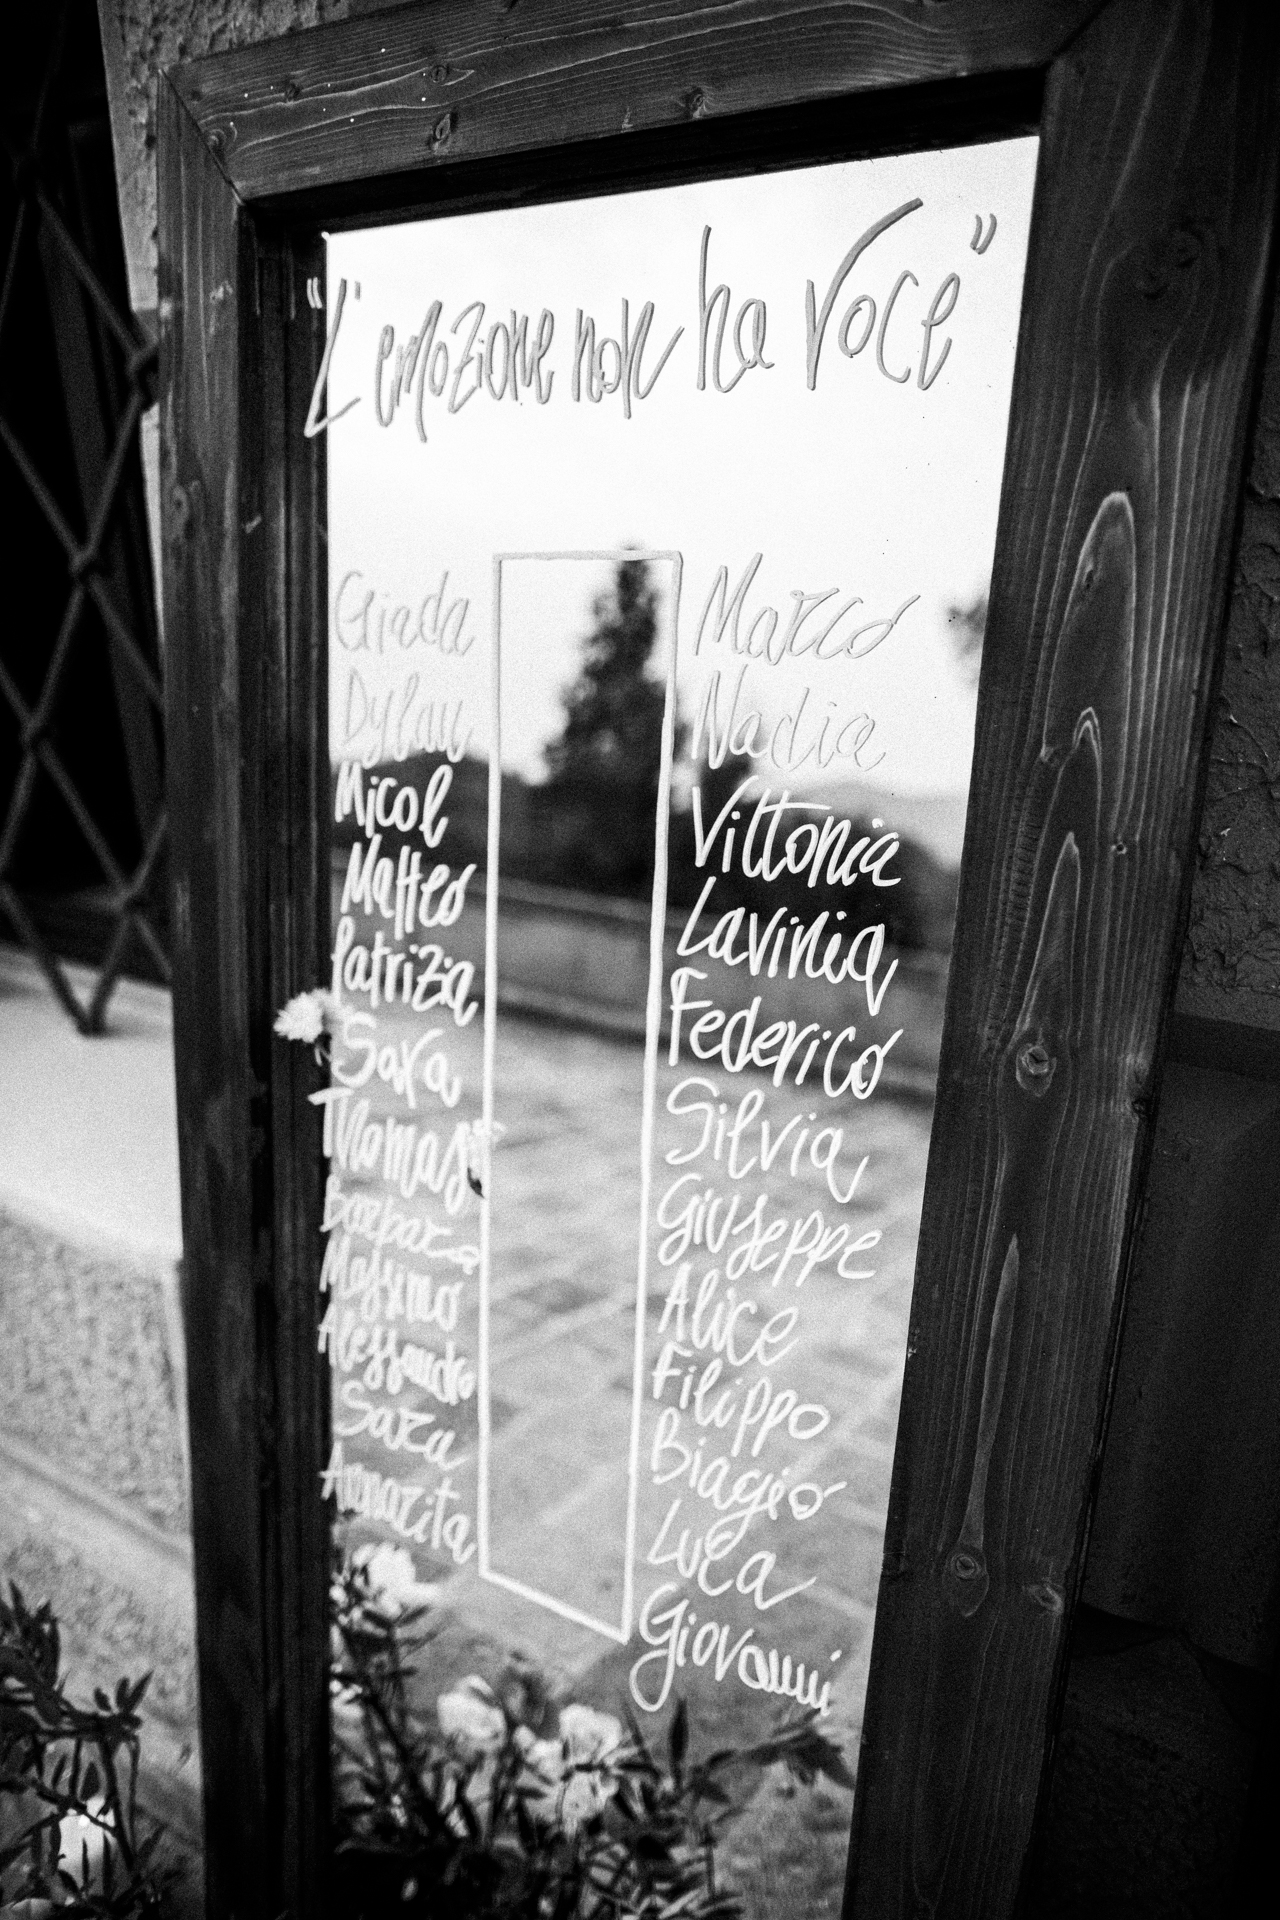 "L'emozione non ha voce"
Giada
Dylan
Micol
Matteo
Patrizia
Sara
Thomas
Barbara
Massimo
Alessandro
Sara
Annarita
Marco
Nadia
Vittoria
Lavinia
Federico
Silvia
Giuseppe
Alice
Filippo
Biagio
Luca
Giovanni